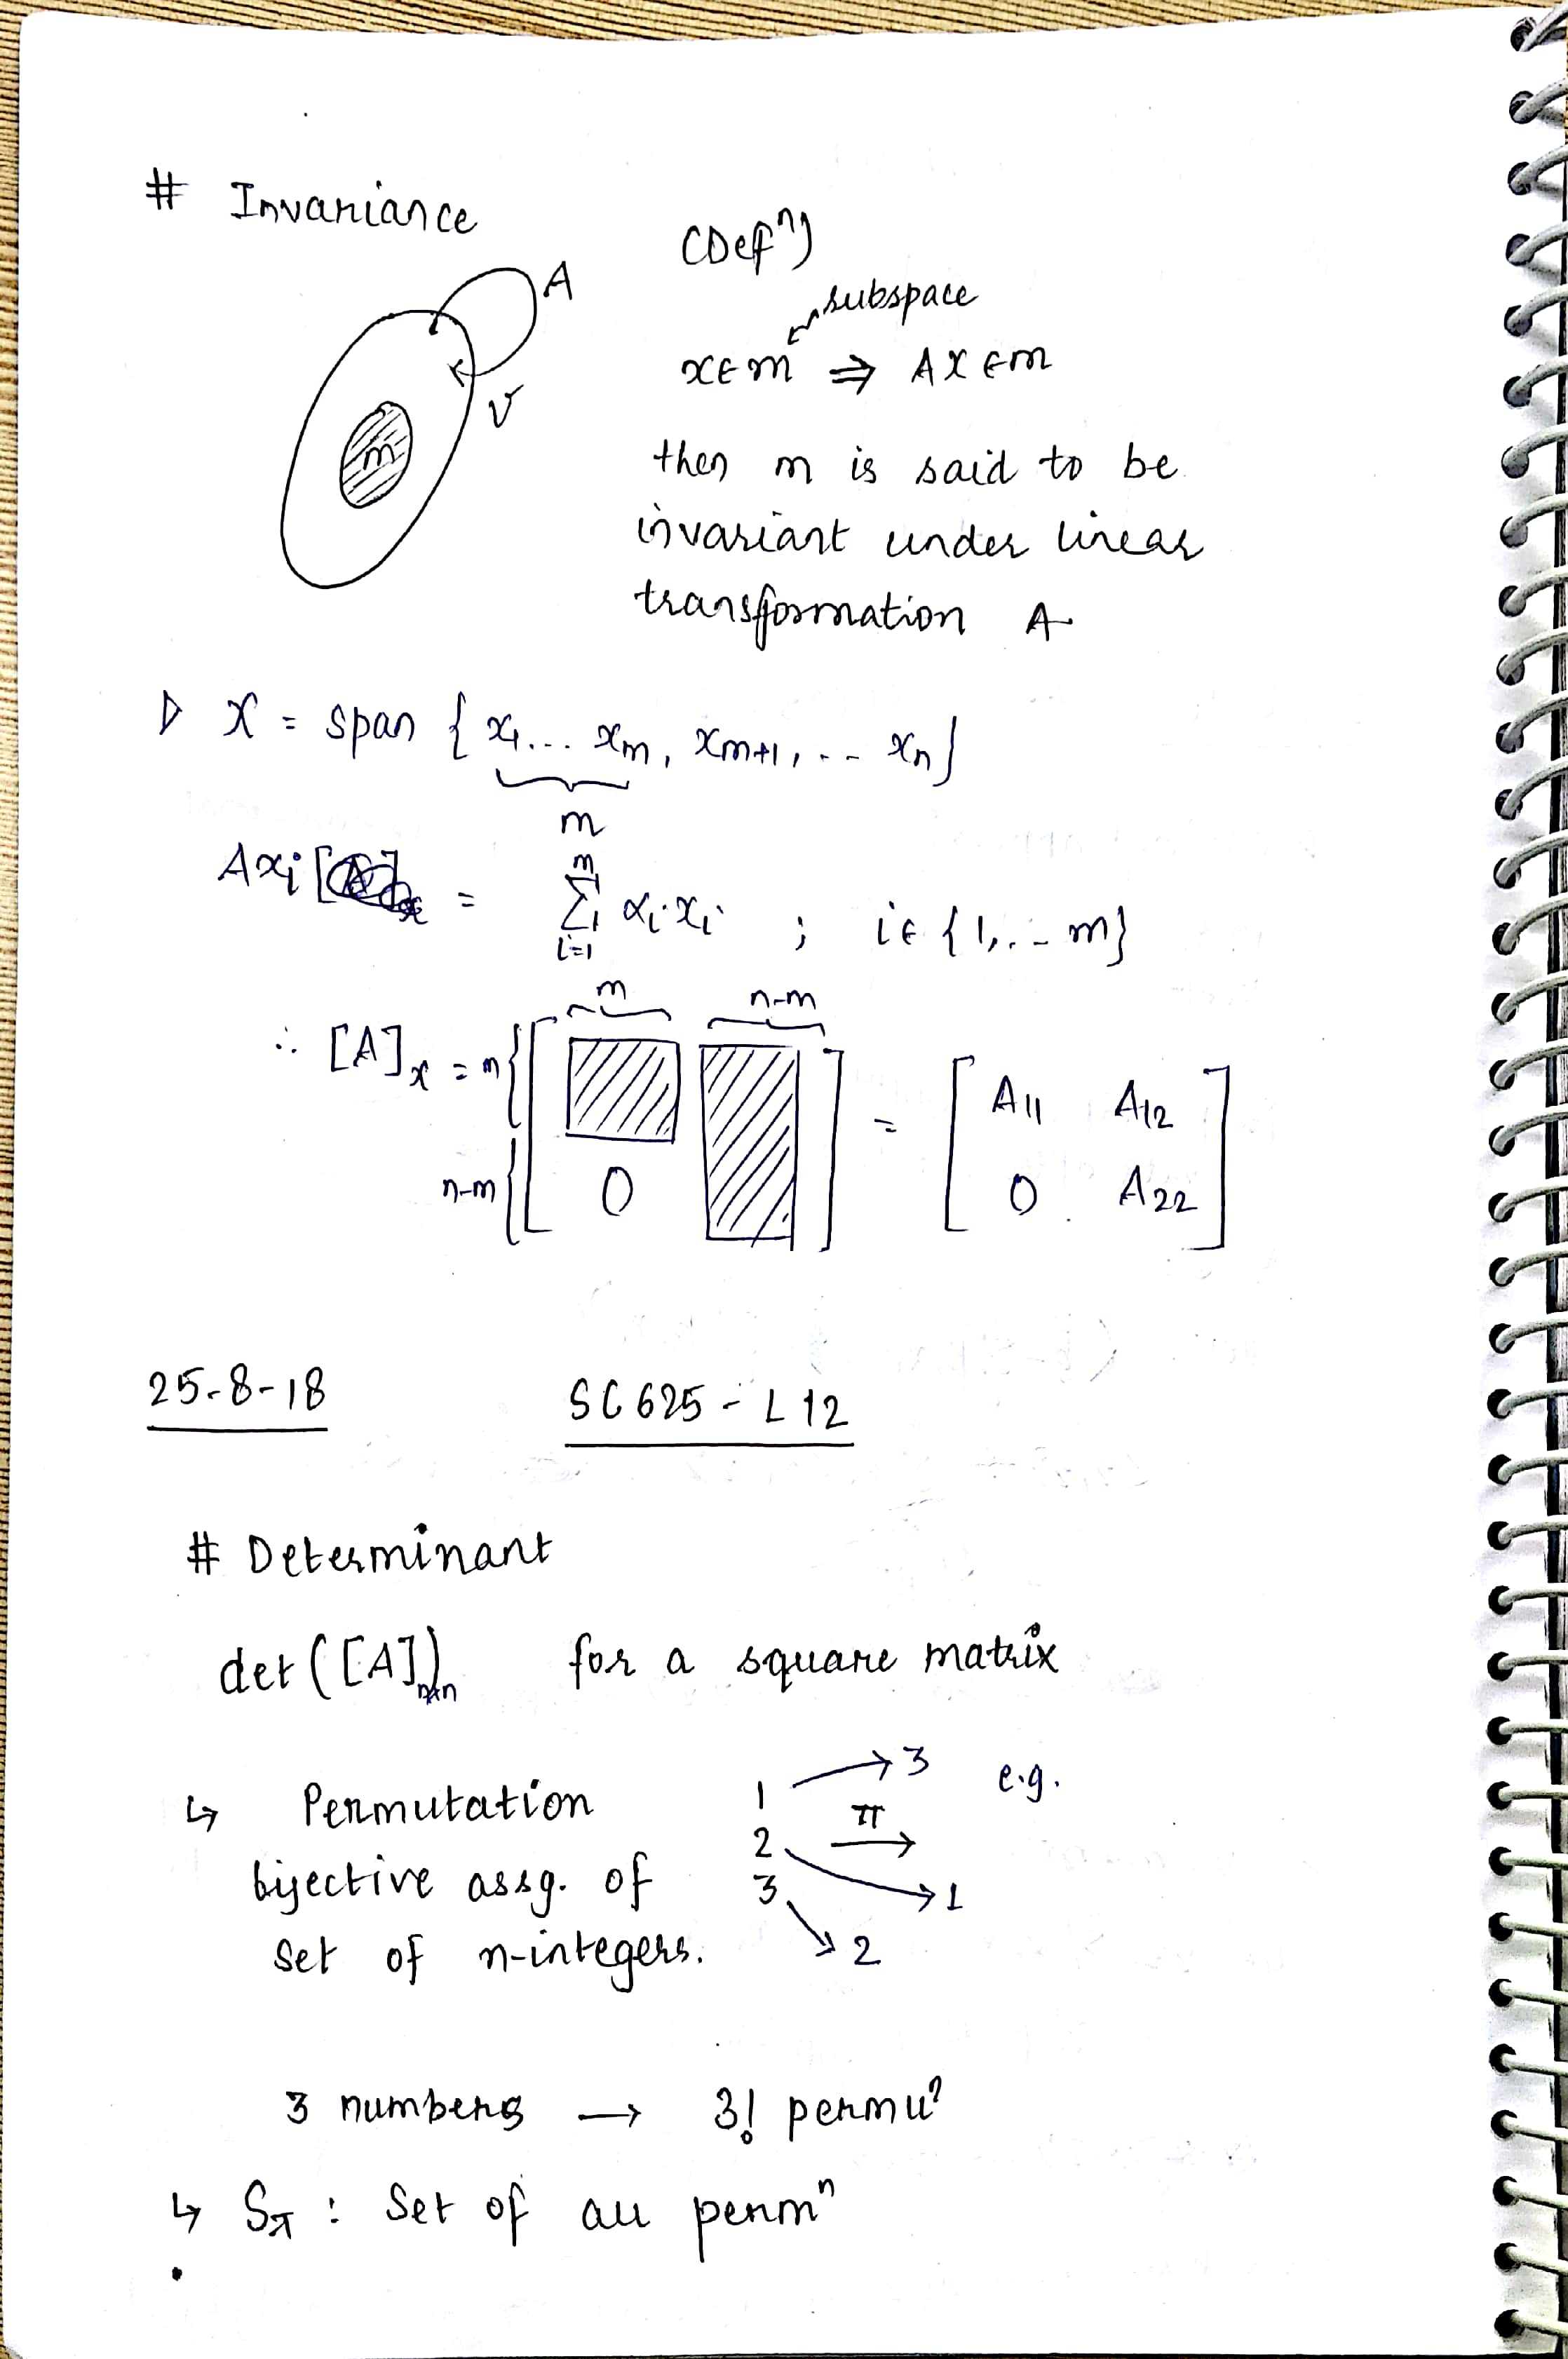 # Invariance
(Defⁿ)
A
subspace
x∈m ⇒ AX∈m
V
m
then m is said to be
invariant under linear
transformation A
▷ X = span { x₁... xₘ, xₘ₊₁, .. xₙ}
m
Axᵢ = ∑ᵢ₌₁ᵐ αᵢxᵢ ; i∈ {1,.. m}
m n-m
∴ [A]ₓ = m{ [ ] = [ A₁₁ A₁₂
n-m{ 0 0 A₂₂ ]
25-8-18 SC625 - L12
# Determinant
det([A])ₙₓₙ for a square matrix
↳ Permutation 1 → 3 e.g.
π
bijective assg. of 2 → 1
set of n-integers. 3 → 2
3 numbers → 3! permuⁿ
↳ Sπ : Set of all permⁿ